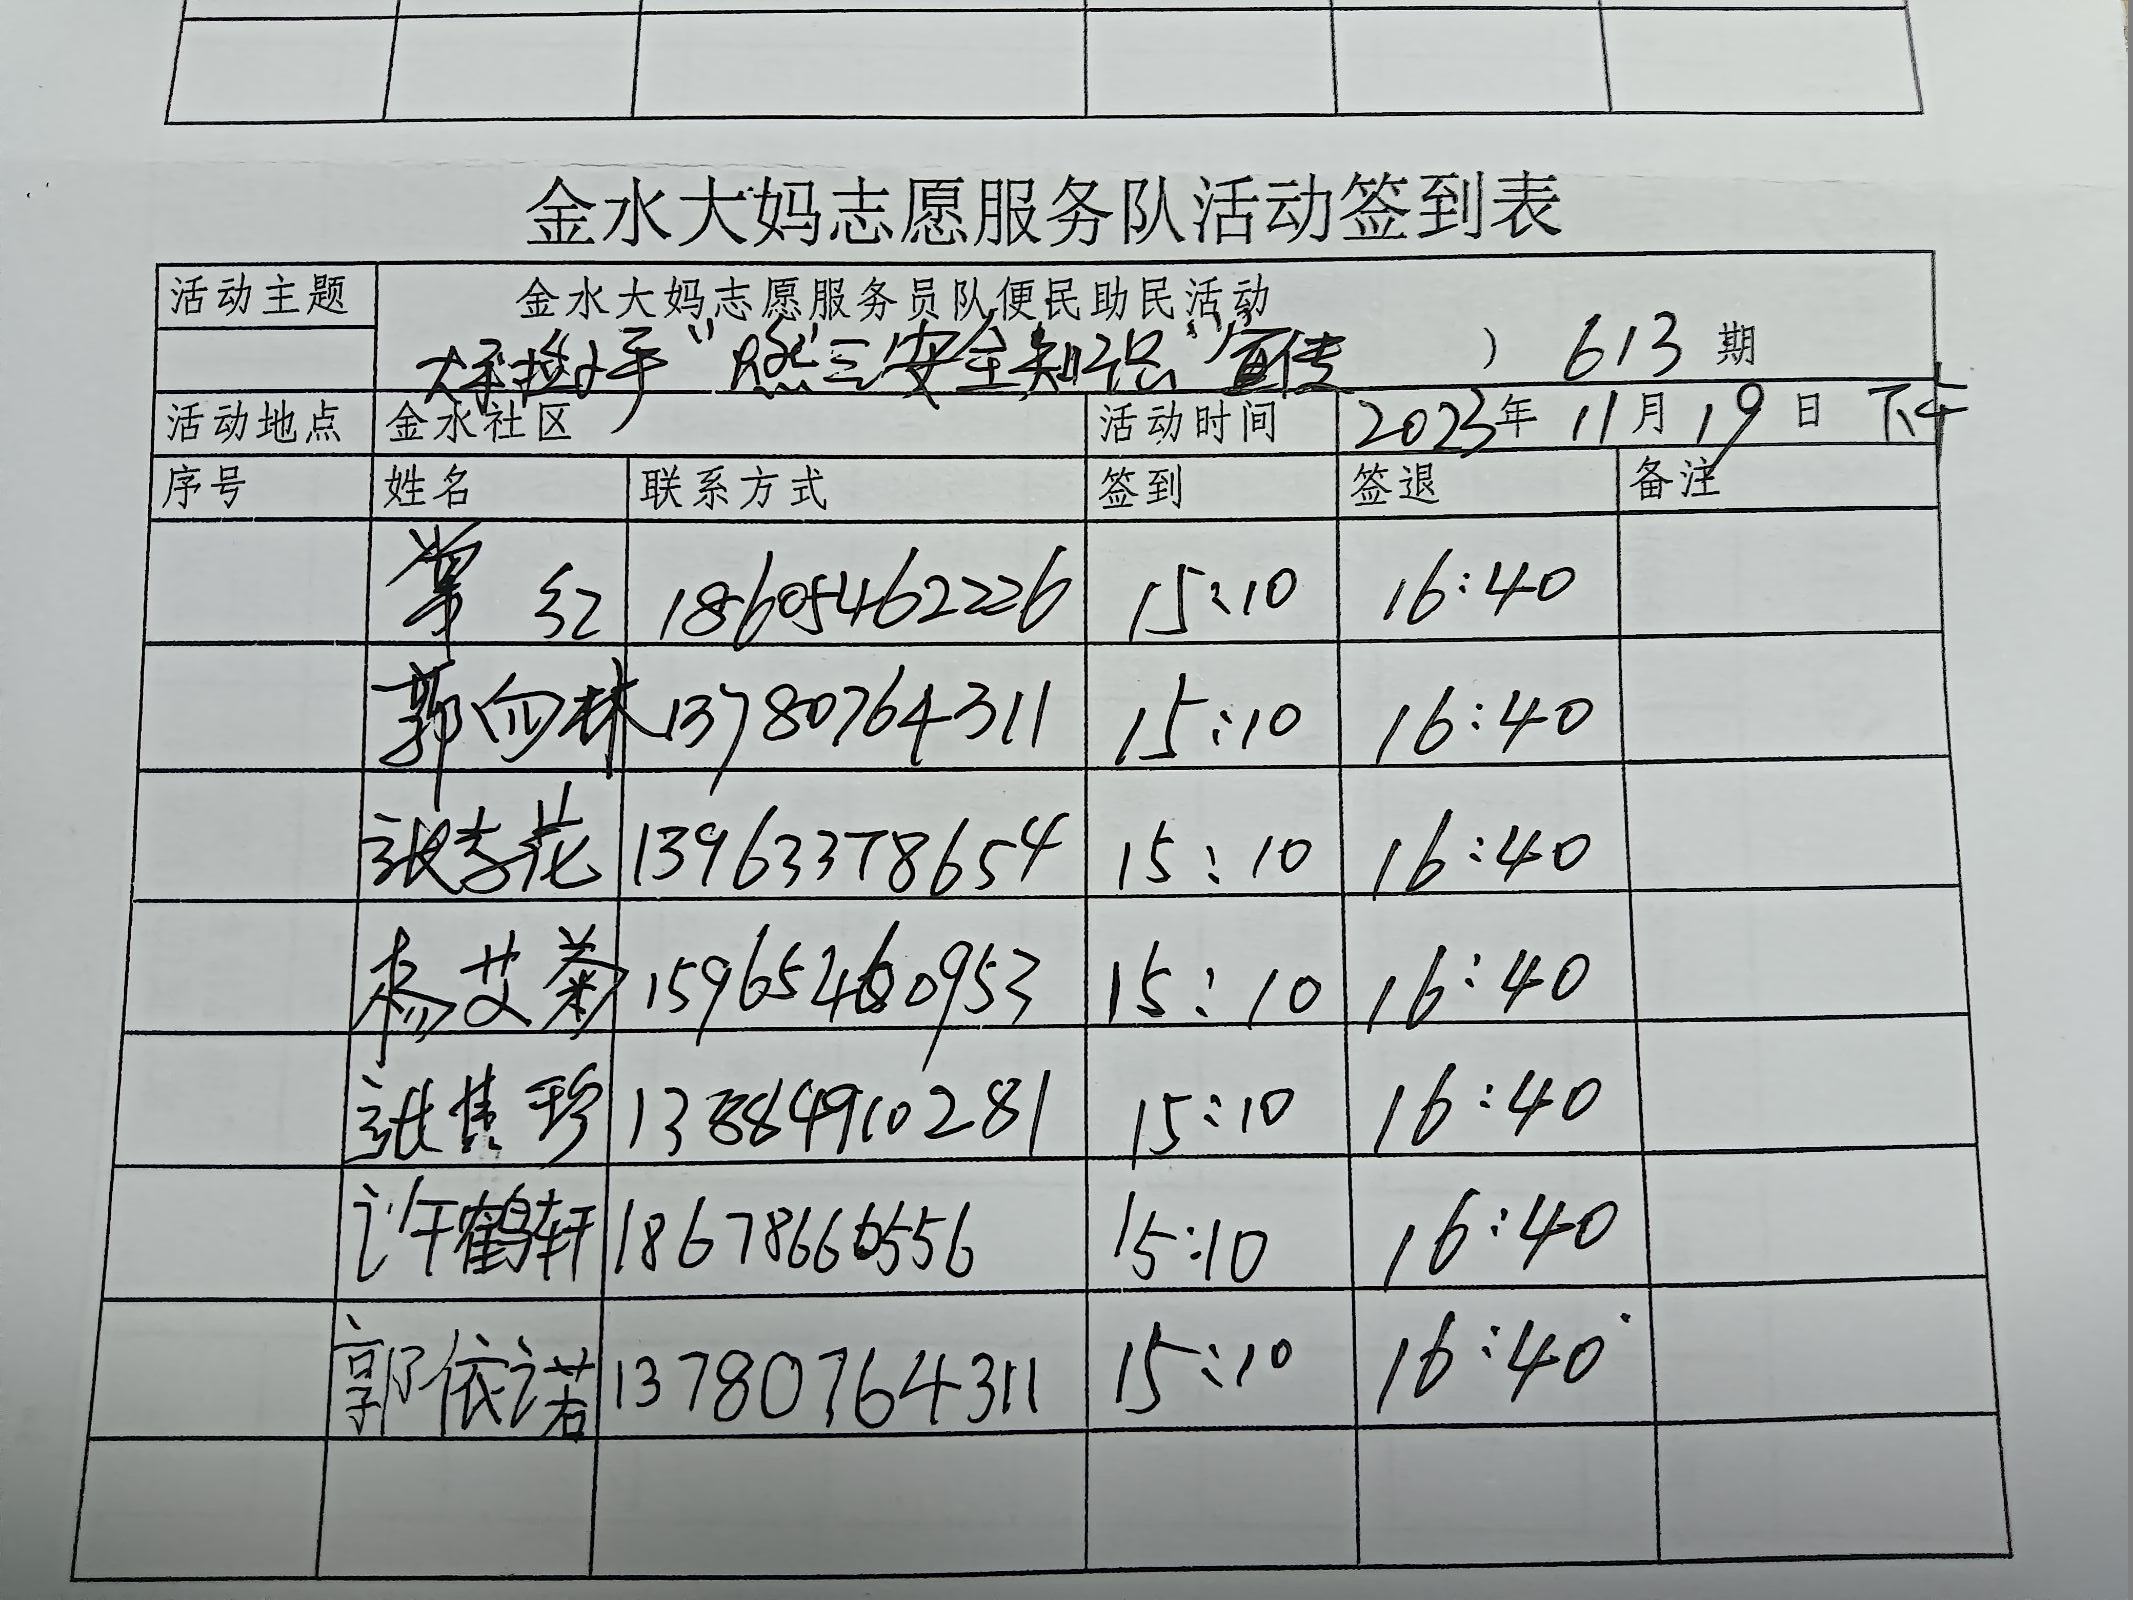 金水大妈志愿服务队活动签到表
活动主题 金水大妈志愿服务员队便民助民活动
大手拉小手“燃气安全知识”宣传 ) 613 期
活动地点 金水社区 活动时间 2023年 11月 19日 下午
序号 姓名 联系方式 签到 签退 备注
红 18605462226 15:10 16:40
郭向林 13780764311 15:10 16:40
张李花 13963378654 15:10 16:40
杨艾菊 15965460953 15:10 16:40
张 珍 13884910281 15:10 16:40
许鹤轩 18678660556 15:10 16:40
郭依诺 13780764311 15:10 16:40